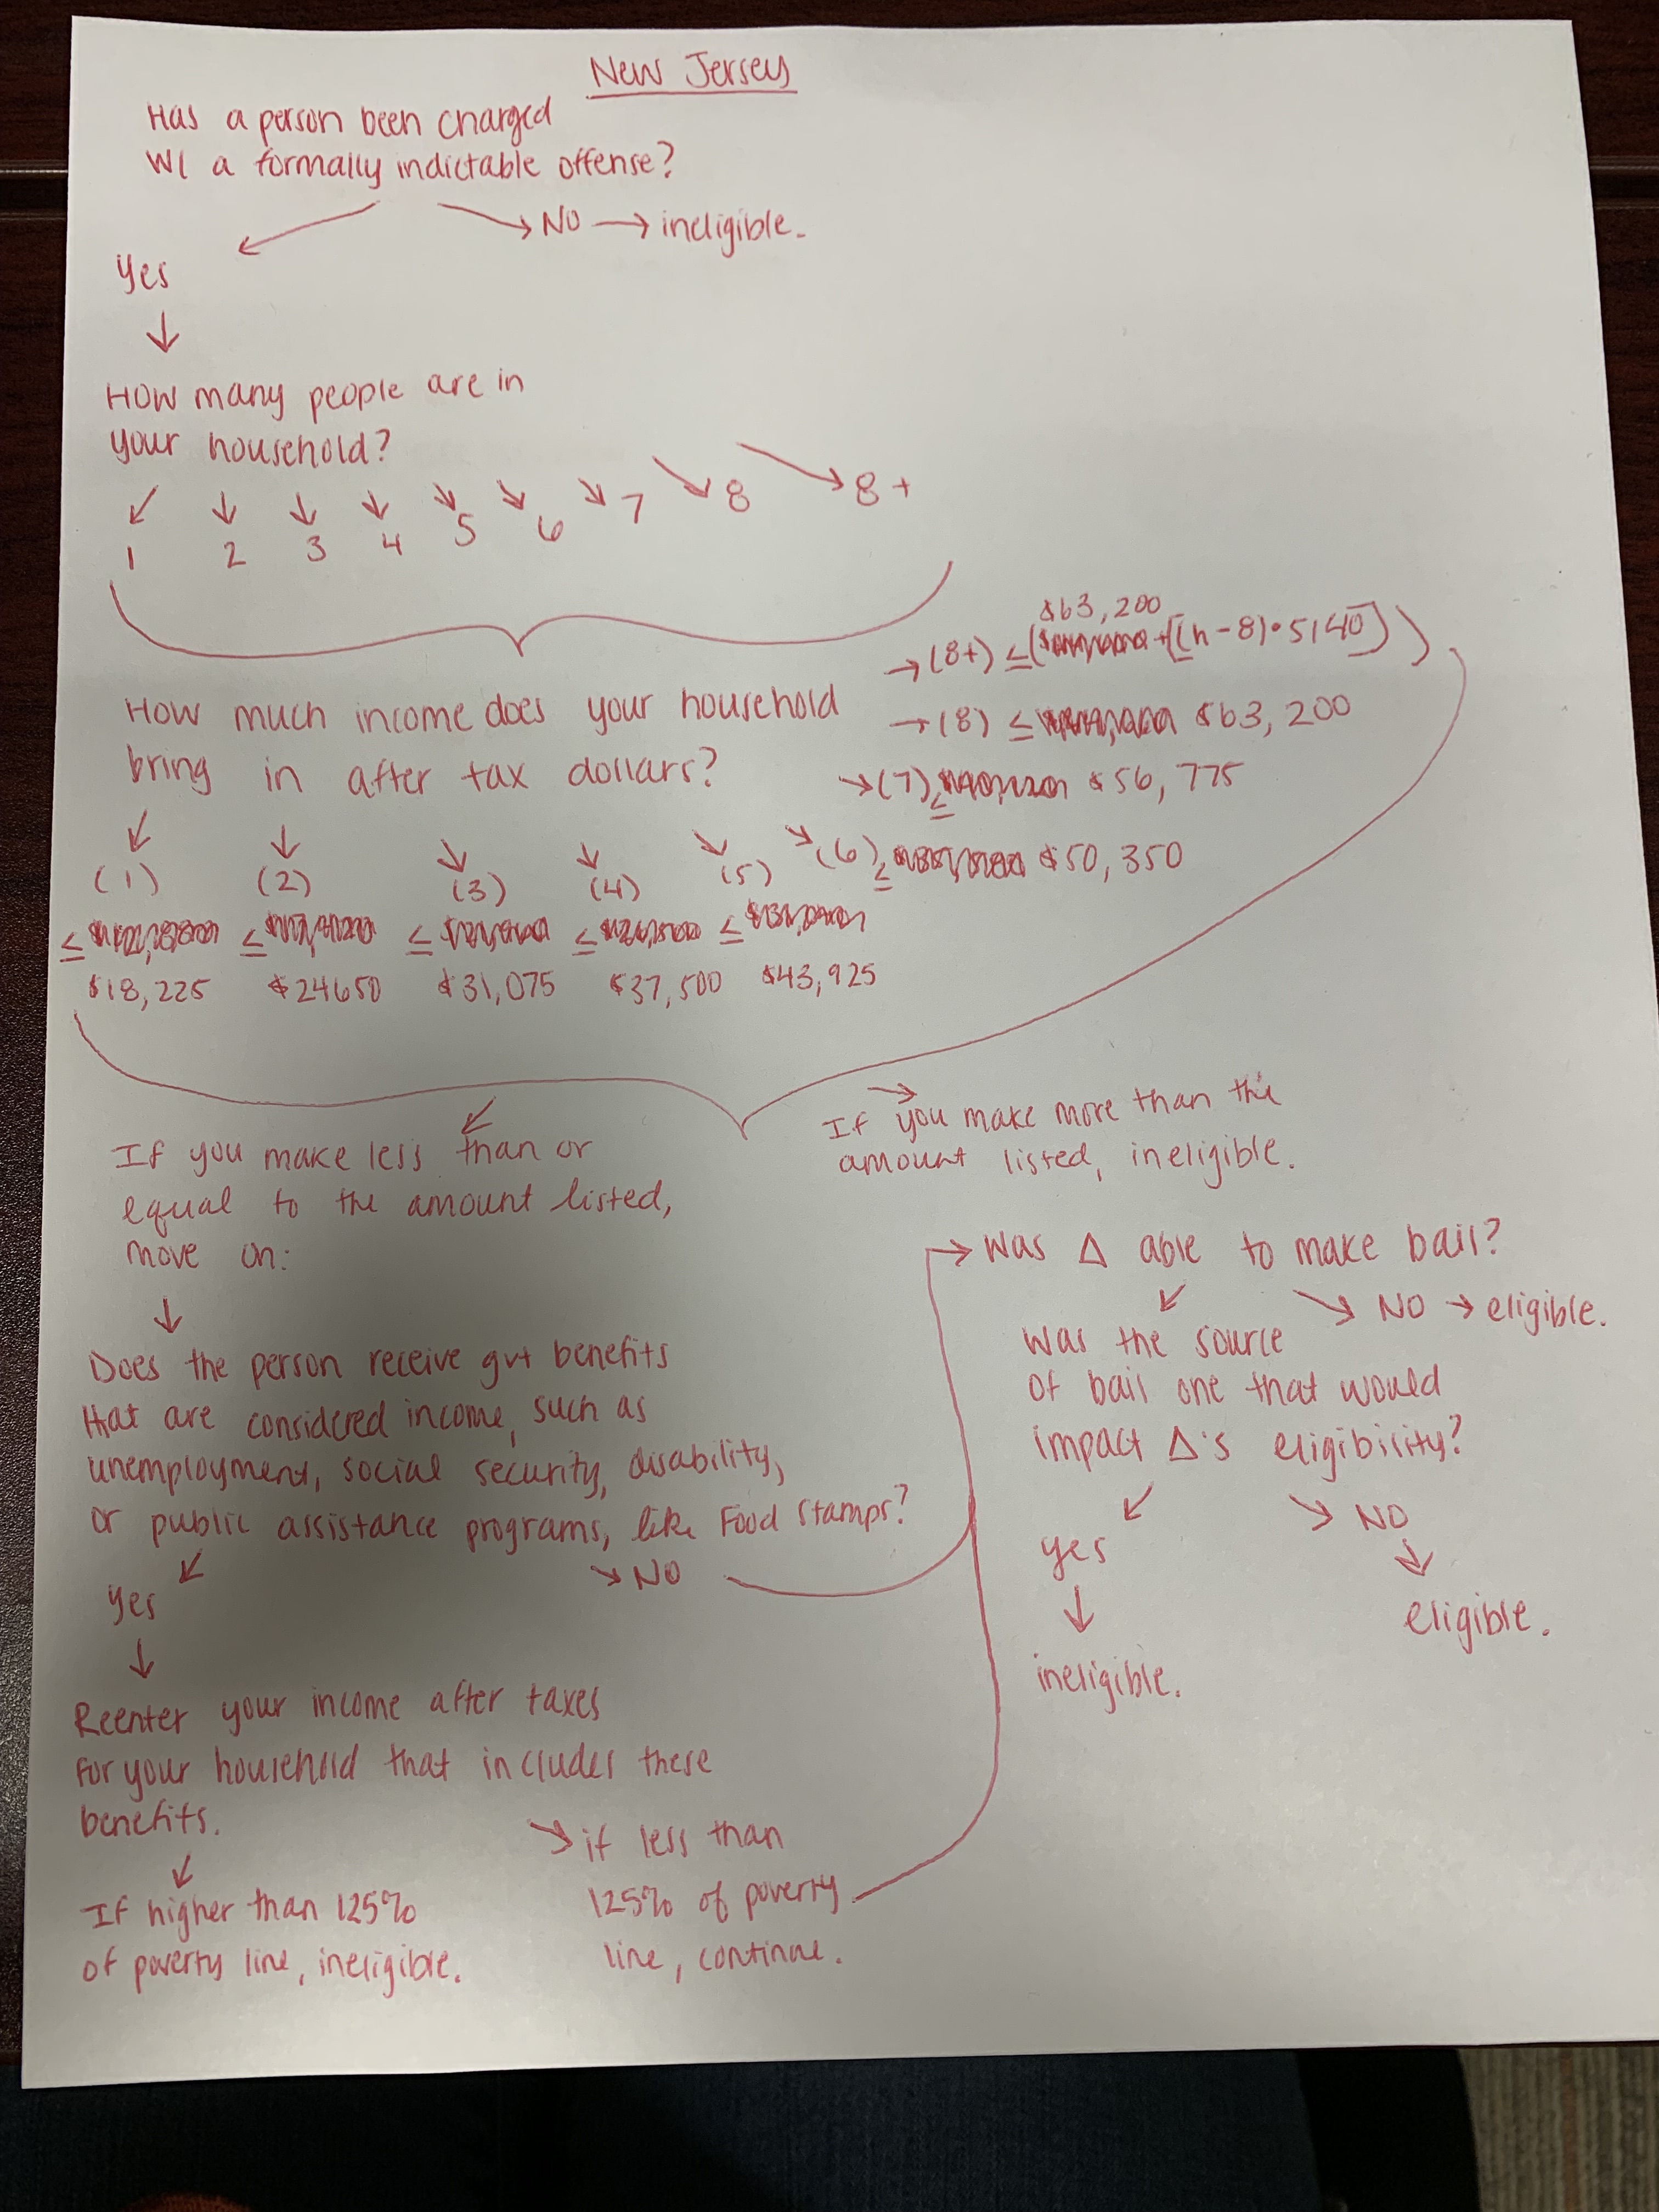 New Jersey
Has a person been charged
w/ a formally indictable offense?
No → ineligible.
Yes
How many people are in
your household?
1 2 3 4 5 6 7 8 8+
How much income does your household
bring in after tax dollars?
(1)
≤
$18,225
(2)
≤
$24650
(3)
≤
$31,075
(4)
≤
$37,500
(5)
≤
$43,925
(6) ≤ $50,350
→ (7) ≤ $56,775
→ (8) ≤ $63,200
$63,200
→ (8+) ≤ ( + [(n-8)•5140])
If you make less than or
equal to the amount listed,
move on:
If you make more than the
amount listed, ineligible.
Does the person receive gvt benefits
that are considered income, such as
unemployment, social security, disability,
or public assistance programs, like Food Stamps?
Yes
No
Reenter your income after taxes
for your household that includes these
benefits.
If higher than 125%
of poverty line, ineligible.
→ if less than
125% of poverty
line, continue.
→ Was Δ able to make bail?
No → eligible.
Was the source
of bail one that would
impact Δ's eligibility?
yes
ineligible.
No
eligible.